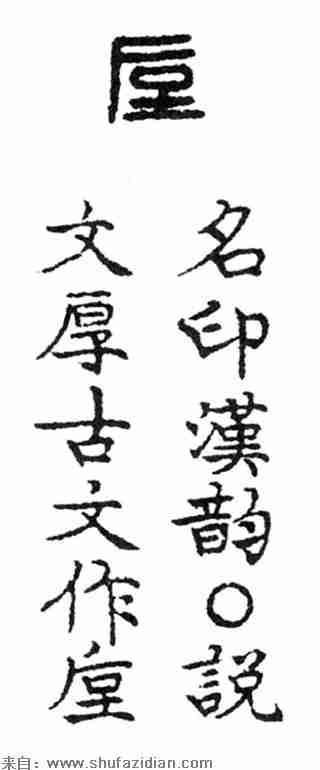 垕
名印漢韵○說
文厚古文作垕
来自：www.shufazidian.com